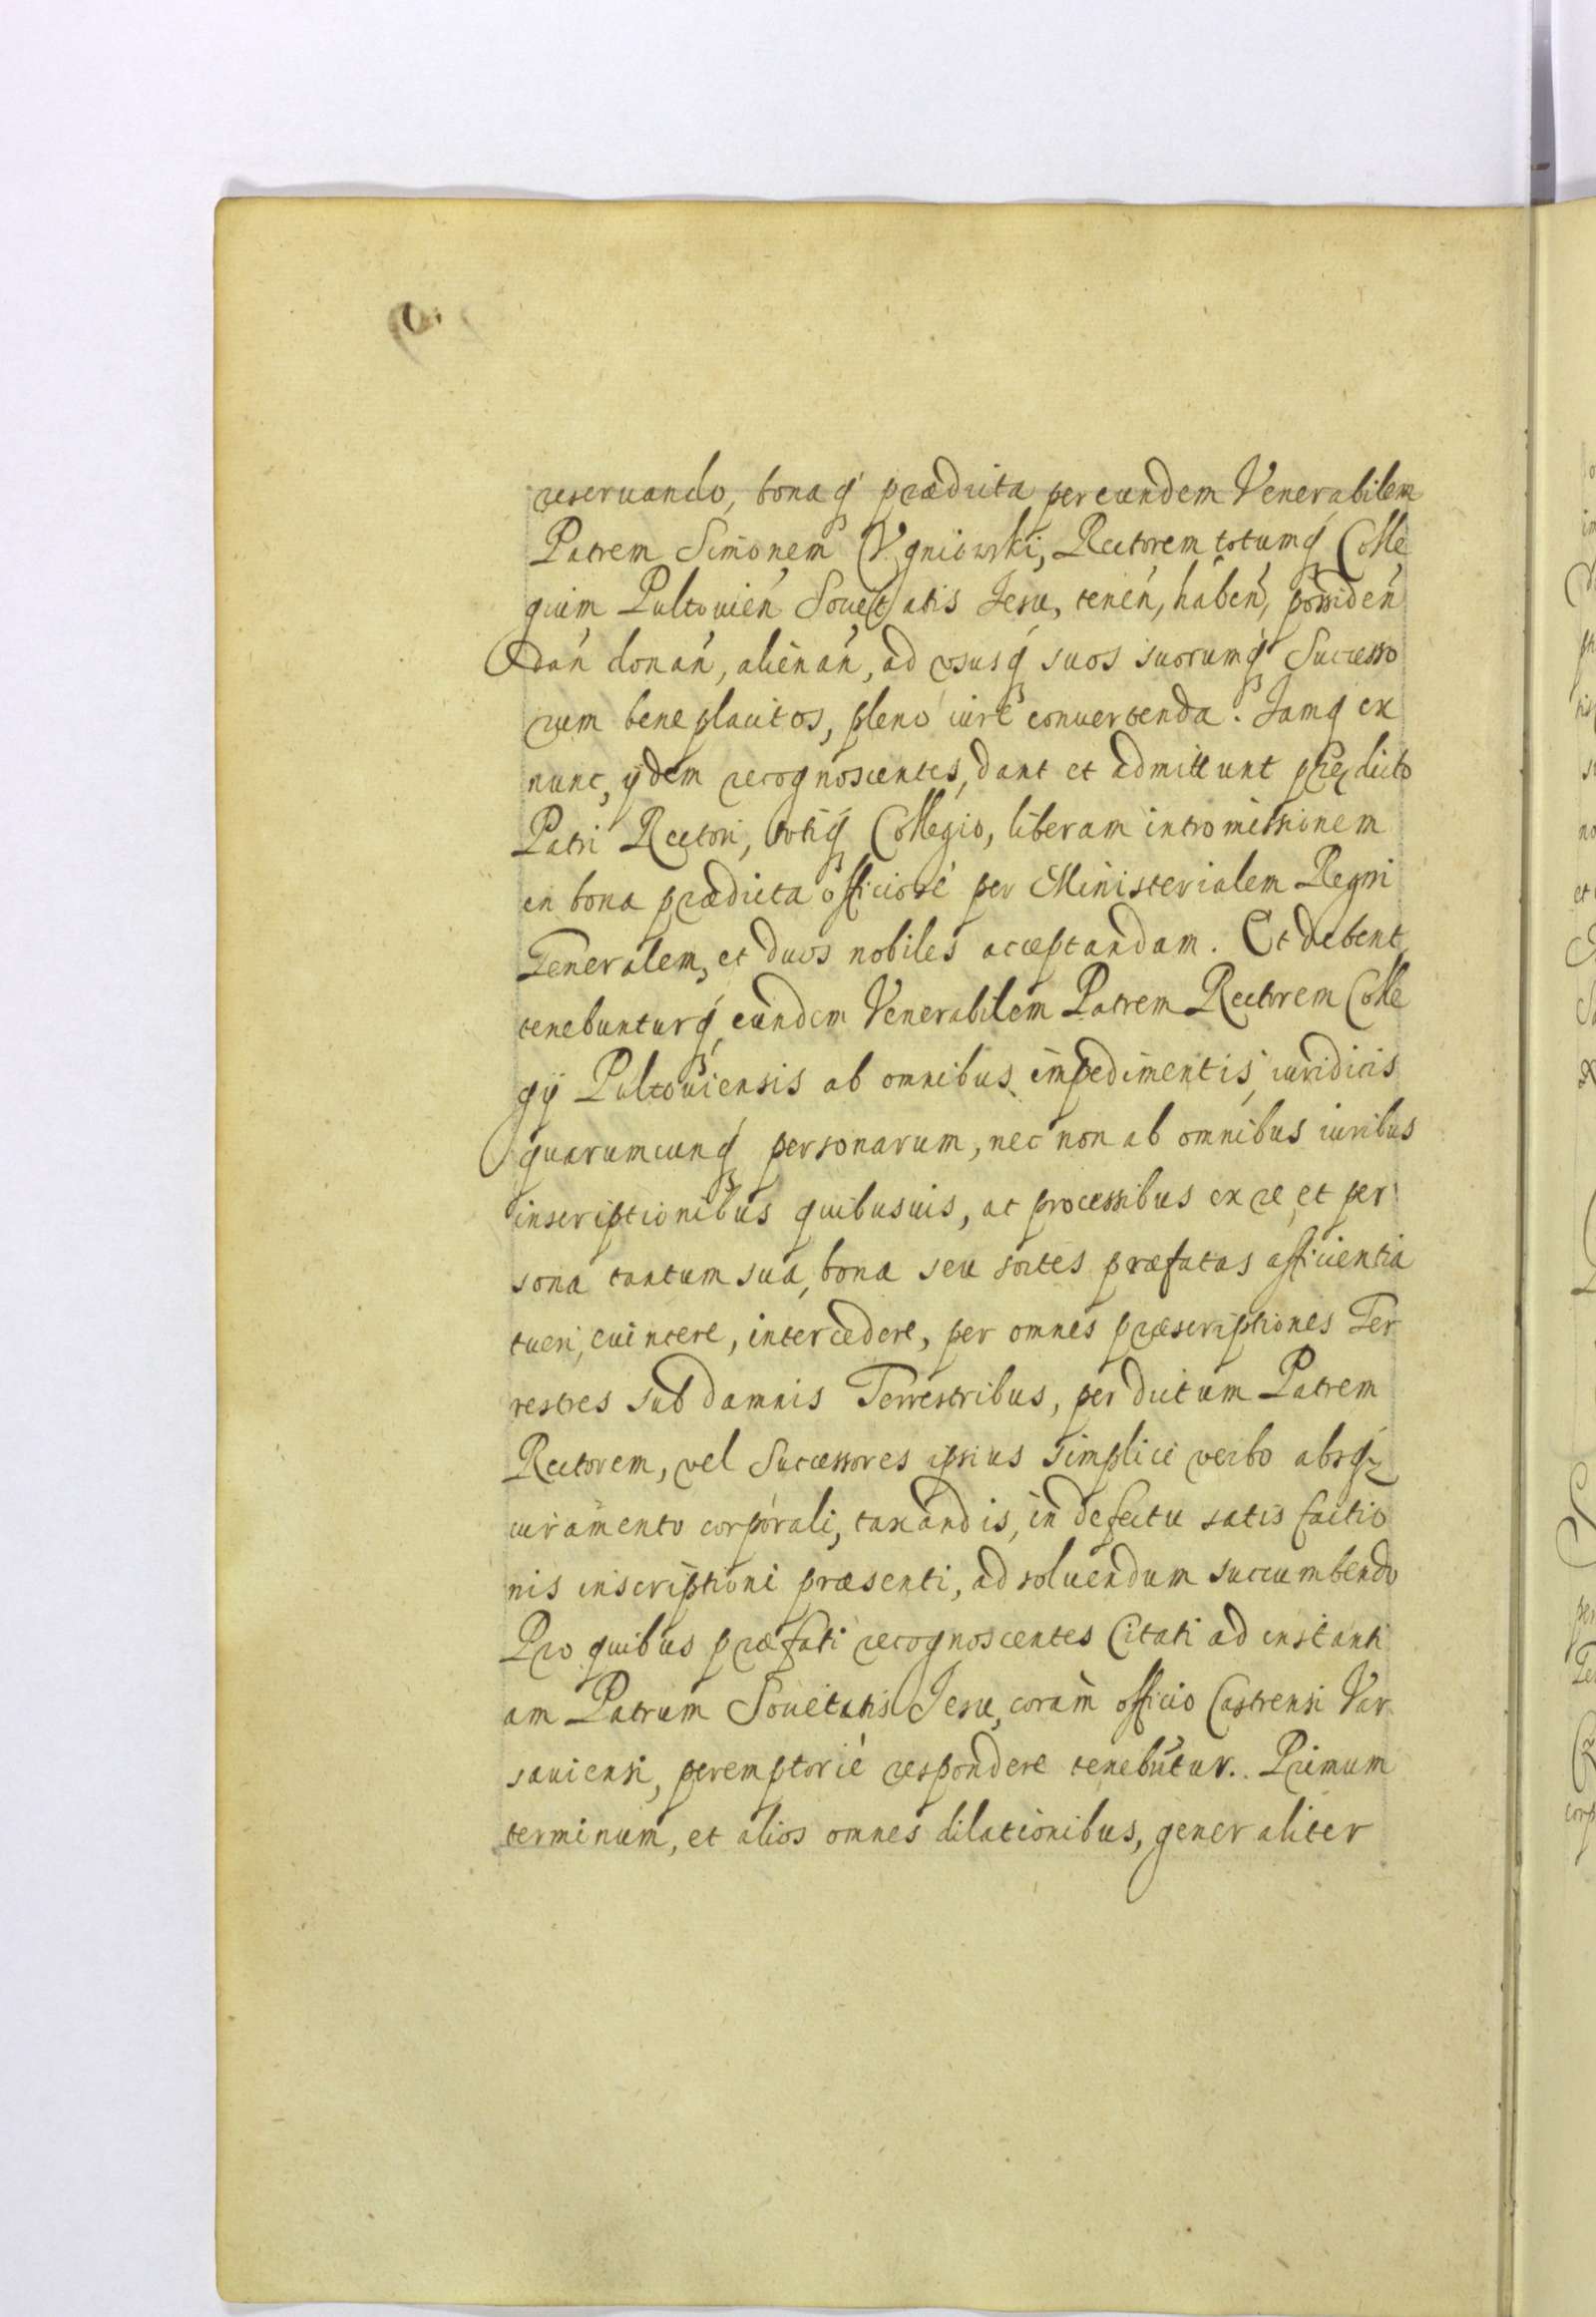 reseruando, bonaq́ prædicta per eundem Venerabilem
Patrem Simonem Vgniowski, Rectorem totumq́ Colle
gium Pultouień Societatis Jesu, teneń, habeń, possideń
dań donań, alienań, ad vsusq́ suos suorumq́ Successo
rum beneplacitos, pleno iure conuertenda. Jamq́ ex
nunc, ijdem recognoscentes, dant et admittunt prędicto
Patri Rectori, totiq́ Collegio, liberam intromissionem
in bona prædicta officiosé per Ministerialem Regni
Generalem, et duos nobiles acceptandam. Et debent
tenebunturq́, eundem Venerabilem Patrem Rectorem Colle
gij Pultouiensis ab omnibus impedimentis iuridicis
quarumcunq́ personarum, nec non ab omnibus iuribus
inscriptionibus quibusuis, ac processibus ex re, et per
sona tantum sua, bona seu sortes præfatas afficientia
tueri, euincere, intercedere, per omnes præscriptiones Ter
restres sub damnis Terrestribus, per dictum Patrem
Rectorem, vel Successores ipsius simplici verbo absq́
iuramento corporali, taxandis, in defectu satis factio
nis inscriptioni præsenti, ad soluendum succumbendo
Pro quibus præfati recognoscentes Citati ad instanti
am Patrum Societatis Jesu, coram officio Castrensi Var
sauiensi, peremptorié respondere tenebūtur. Primum
terminum, et alios omnes dilationibus, generaliter